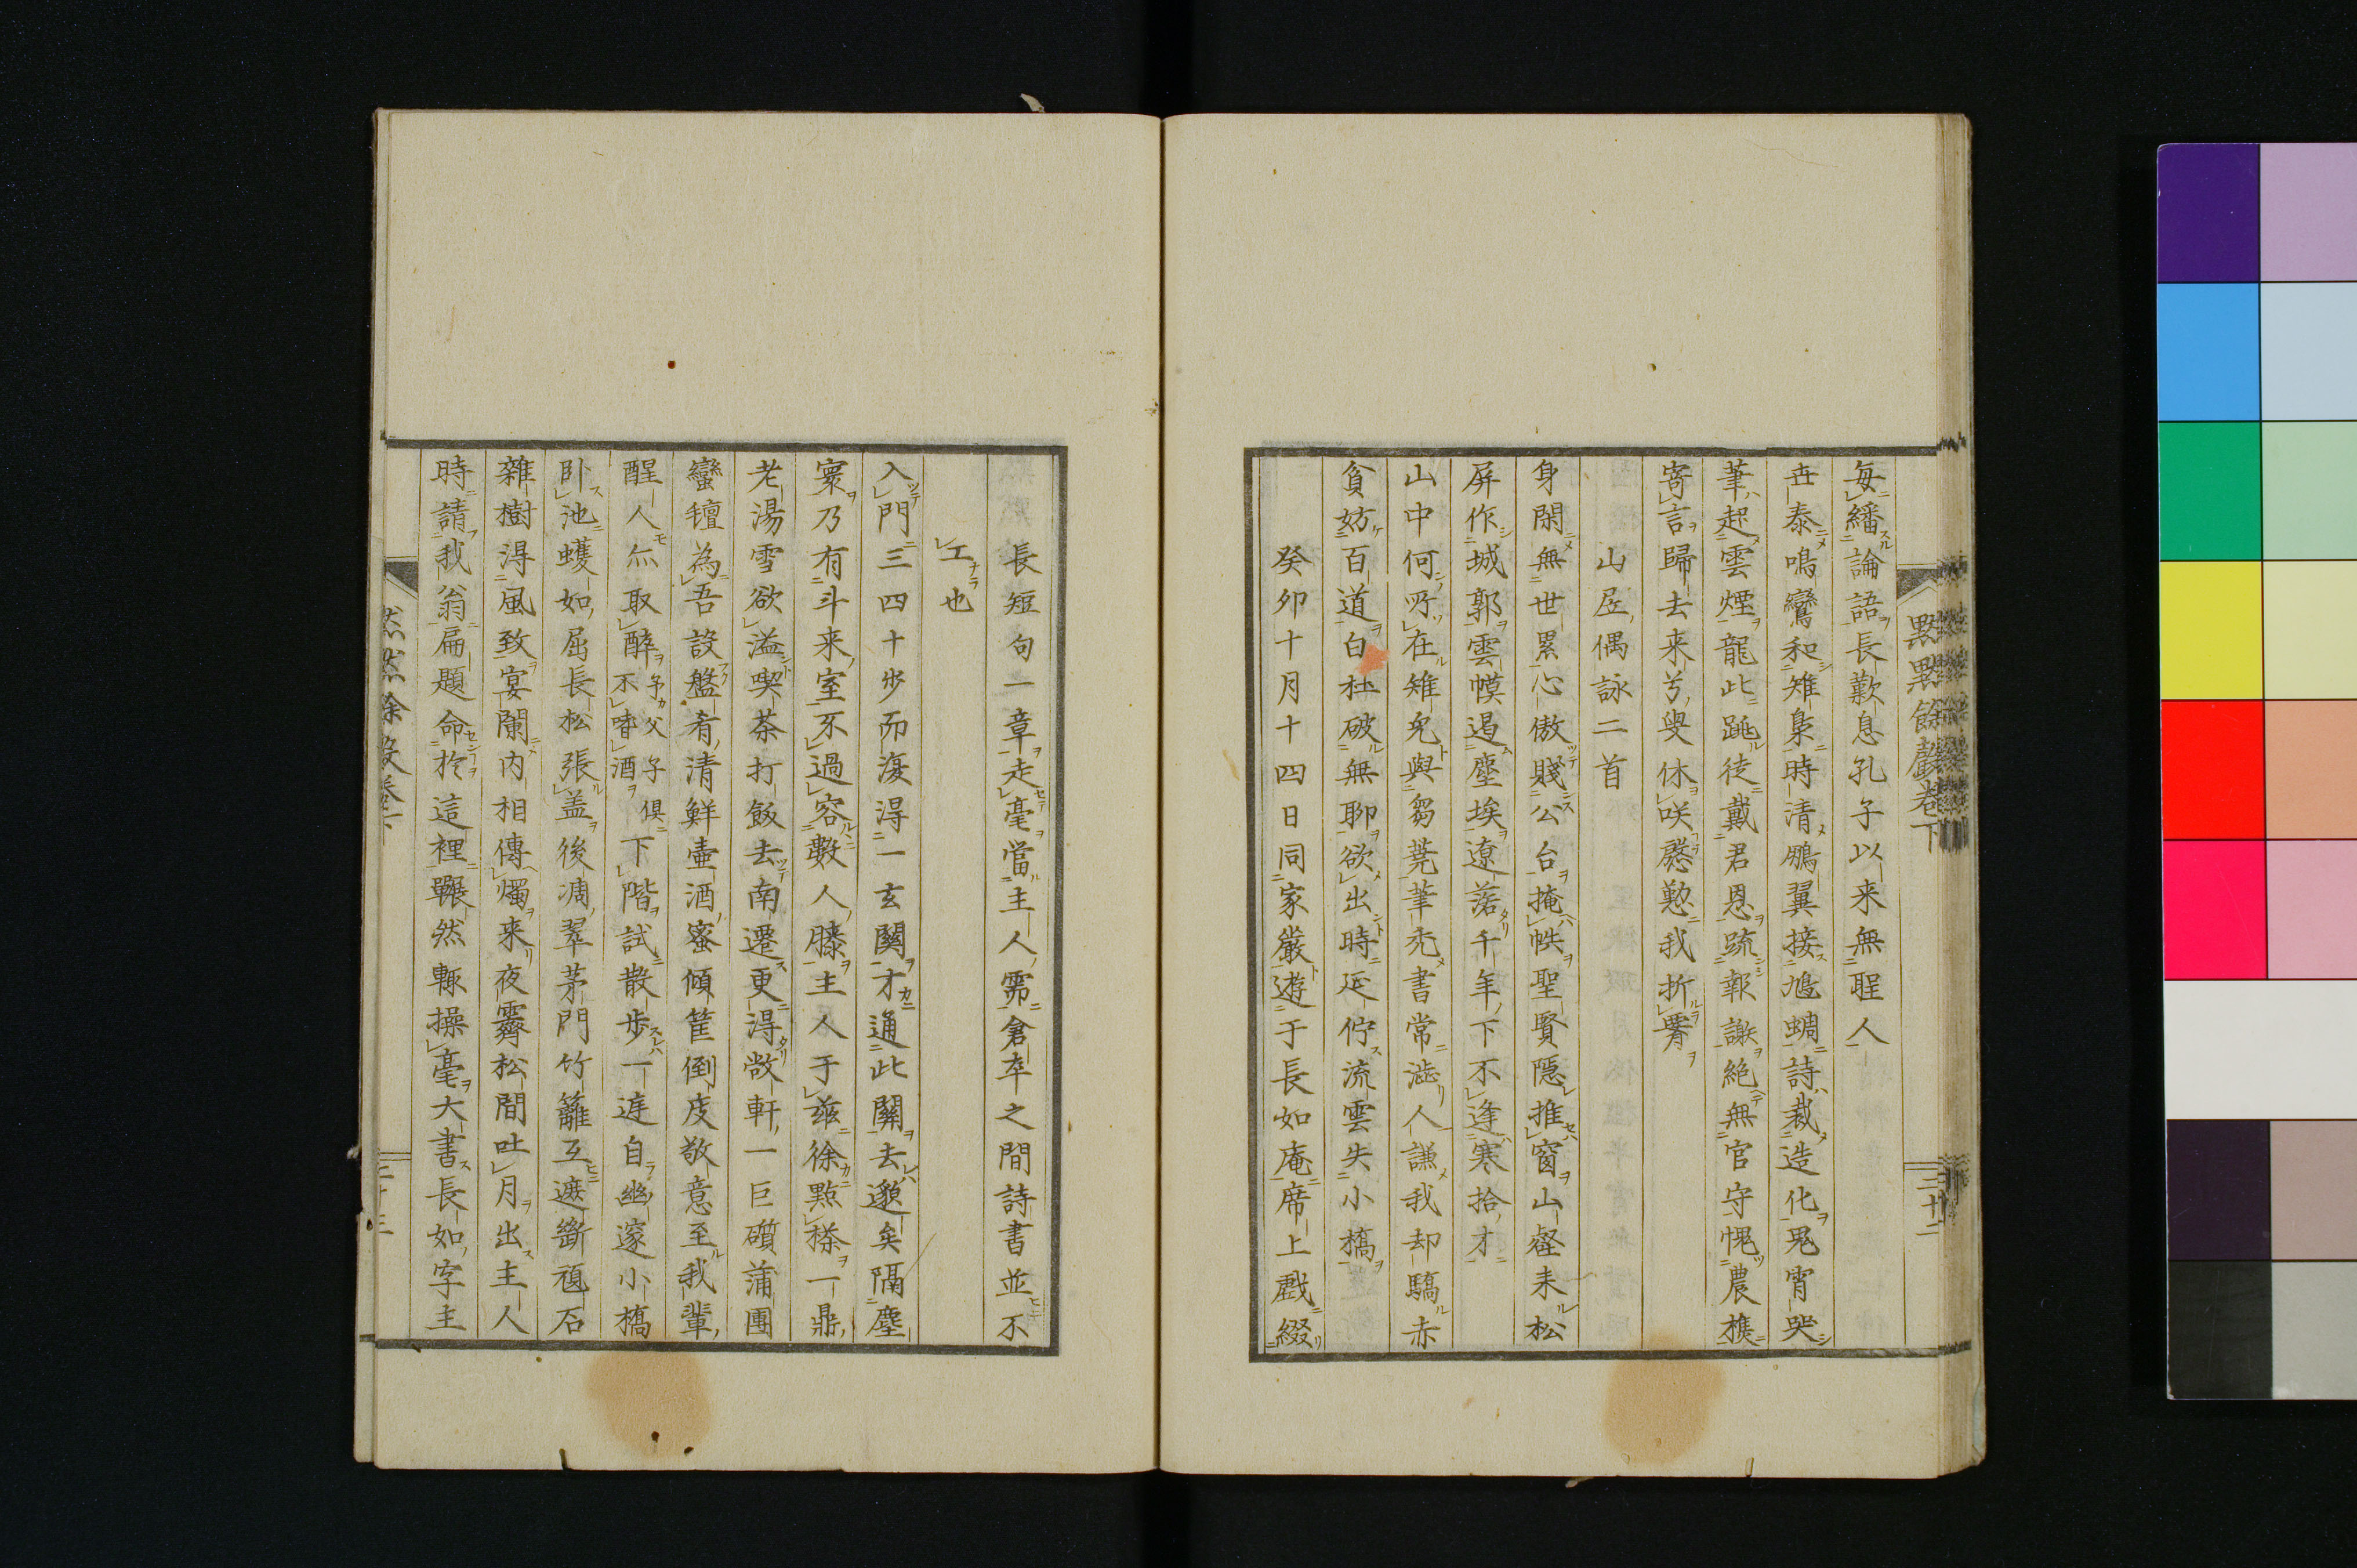 每繙論語長歎息孔子以来無聖人
世泰鳴鸞和雉梟時清鵬翼接鳩蜩詩裁造化鬼宵哭
筆起雲煙龍此跳徒戴君恩疏報謝絶無官守愧農樵
寄言歸去来兮叟休咲慇懃我折腰
山居偶詠二首
身閑無世累心傲賤公台掩帙聖賢隠推窗山壑来松
屏作城郭雲幙遏塵埃遼落千年下不逢寒拾才
山中何所在雉兔與芻蕘筆禿書常澁人謙我却驕赤
貧妨百道白社破無聊欲出時延佇流雲失小橋
癸卯十月十四日同家嚴遊于長如庵席上戲綴
點點餘皷卷下
三十二
長短句一章走毫當主人需倉卒之間詩書並不
工也
入門三四十步而復得一玄關才通此關去邈矣隔塵
寰乃有斗来室不過容數人膝主人于玆徐點榛一鼎
老湯雪欲溢喫茶打飯去南遷更得敞軒一巨礩蒲團
蠻氊為吾設盤肴清鮮壷酒蜜傾筐倒庋敬意至我輩
醒人亦取醉予父子俱不嗜酒下階試散步一逕自幽邃小橋
卧池蠖如屈長松張盖後凋翠茅門竹籬互遮斷頑石
雜樹得風致宴闌内相傳燭来夜霽松間吐月出主人
時請我翁扁題命於這裡囅然輙操毫大書長如字主